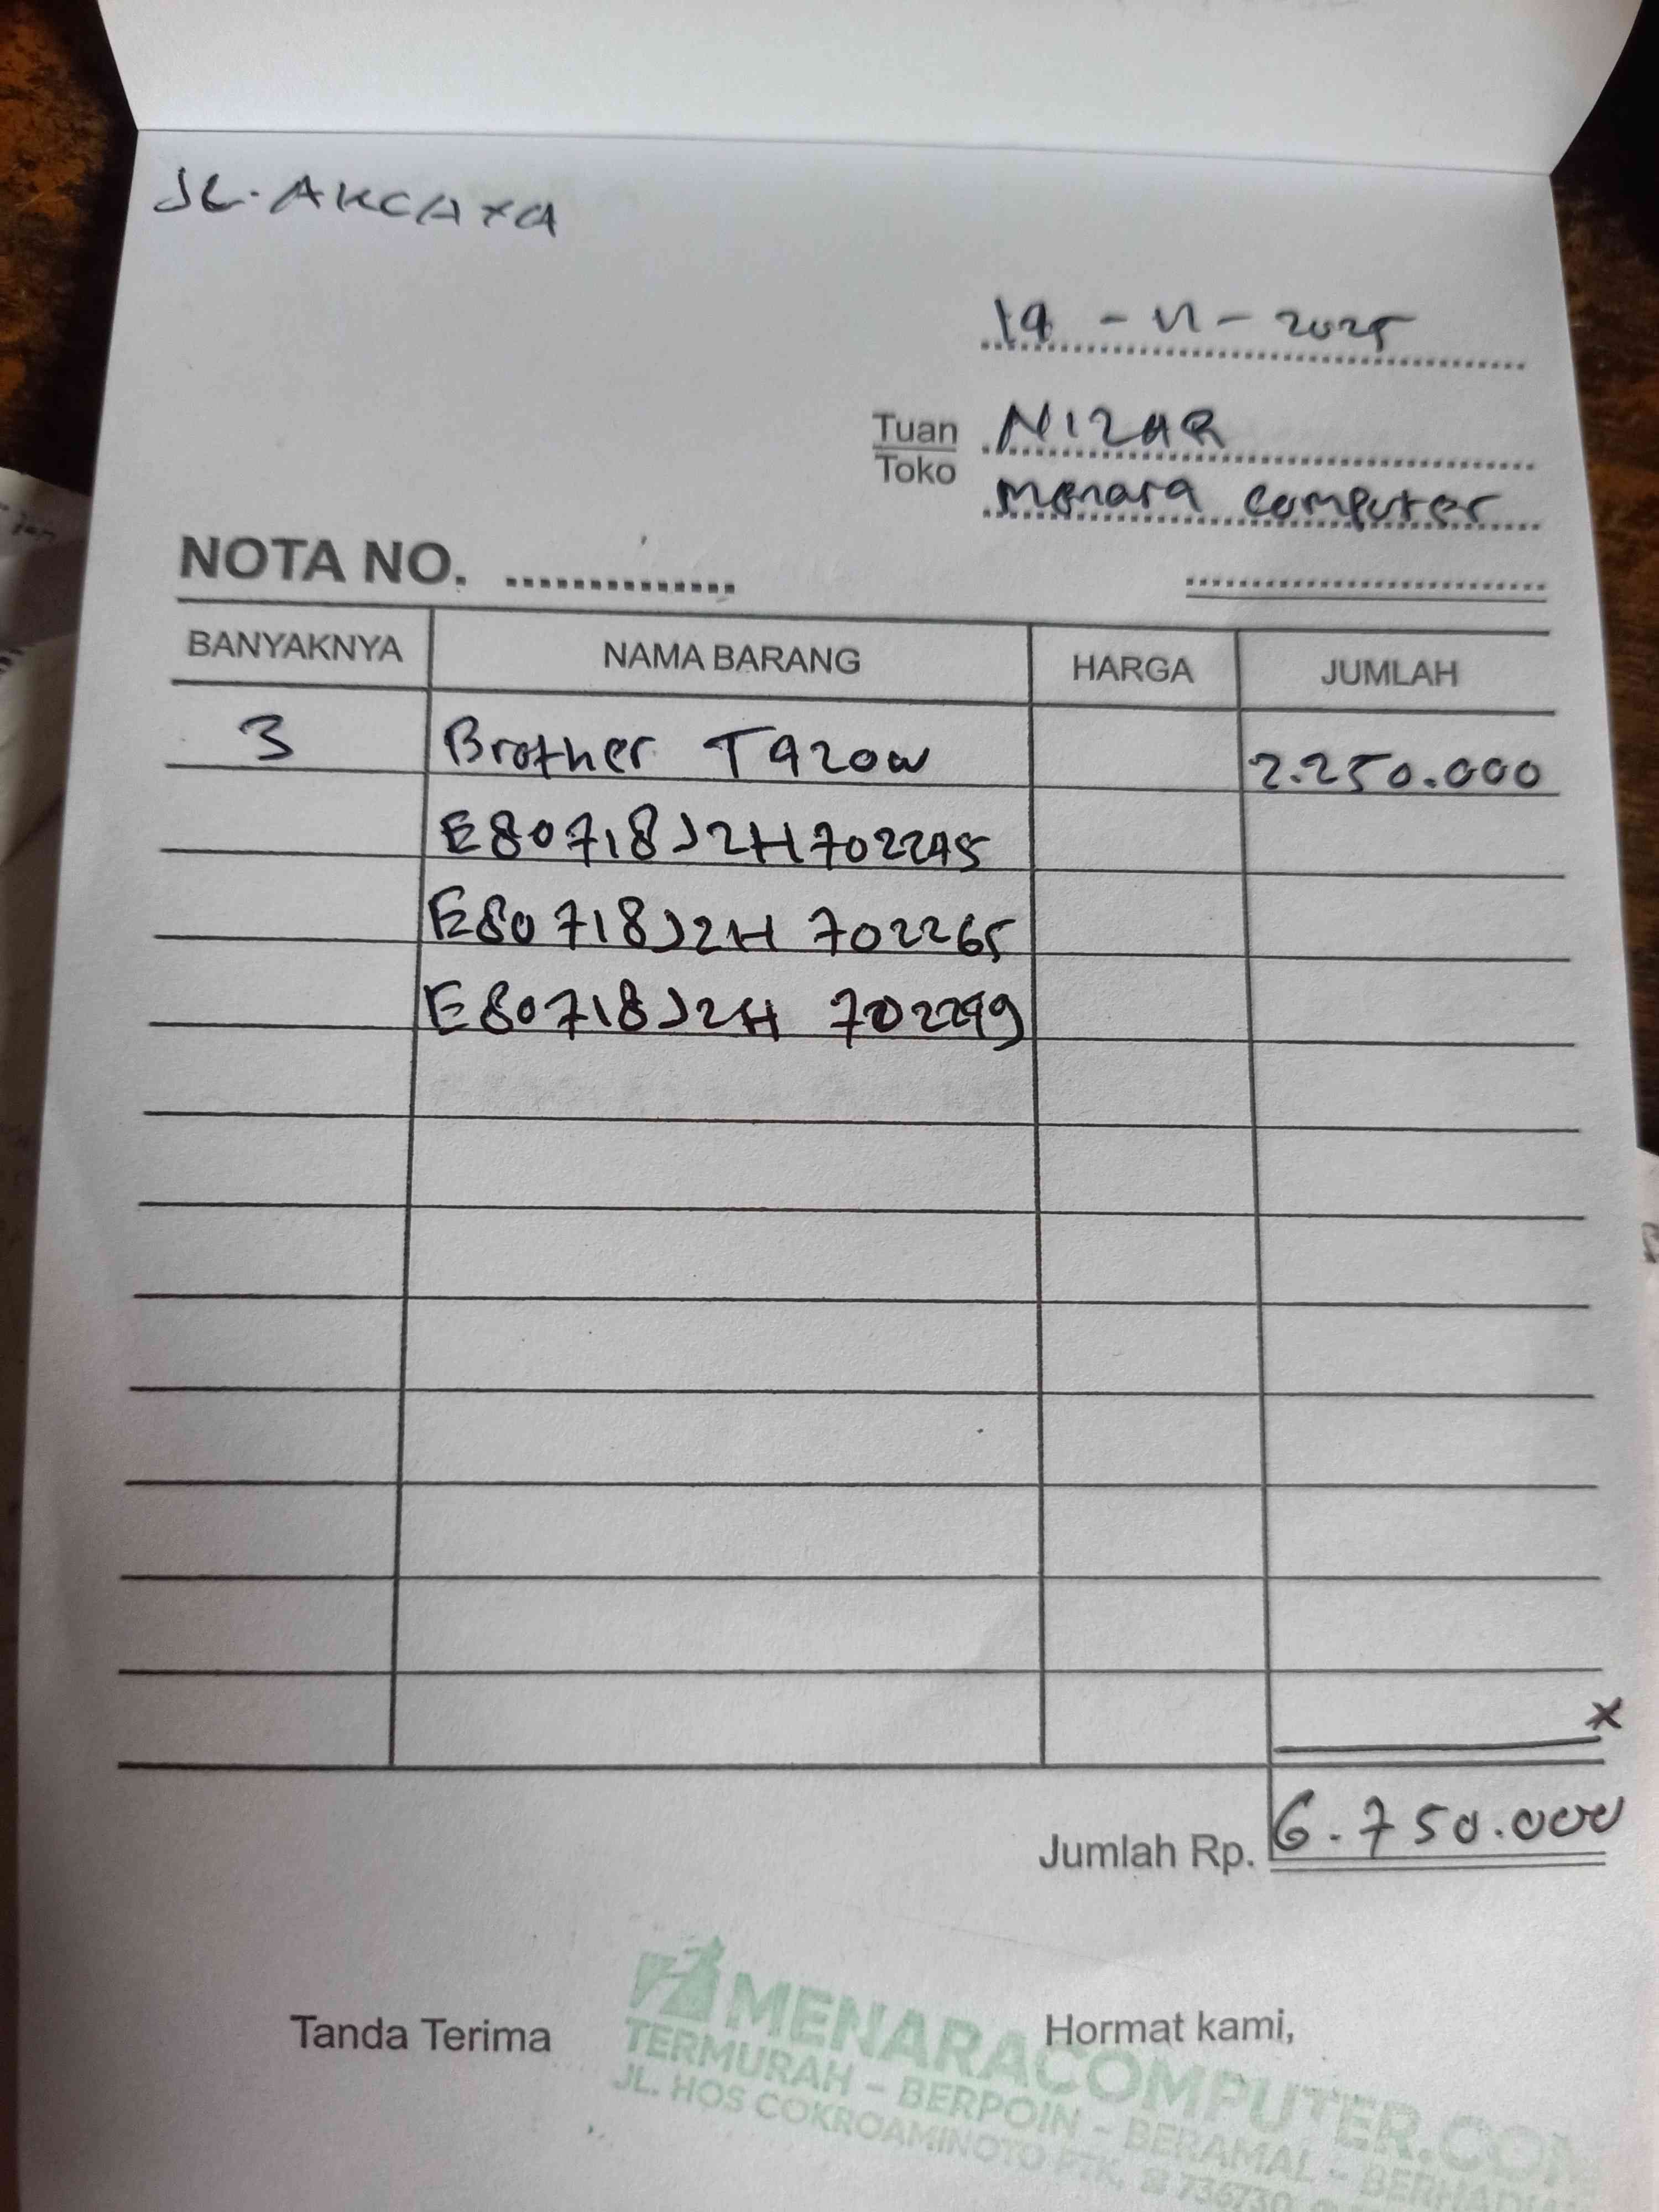 JL. AKCAYA
19 - 11 - 2025
Tuan NIZAR
Toko Menara Computer
NOTA NO. ..............
BANYAKNYA NAMA BARANG HARGA JUMLAH
3 Brother T920W 2.250.000
E80718J2H702245
E80718J2H 702265
E80718J2H 702249
x
Jumlah Rp. 6.750.000
Tanda Terima Hormat kami,
MENARACOMPUTER.COM
TERMURAH - BERPOIN - BERAMAL -
JL. HOS COKROAMINOTO PTK. ☎ 736730